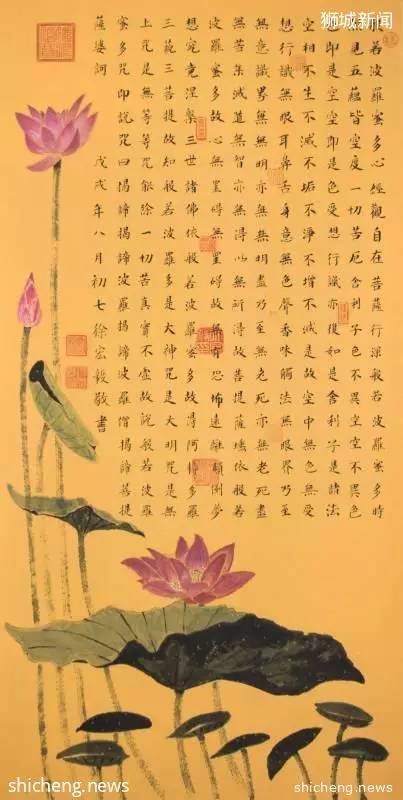 狮城新闻
般若波羅蜜多心經觀自在菩薩行深般若波羅蜜多時
照見五蘊皆空度一切苦厄舍利子色不異空空不異色
色即是空空即是色受想行識亦復如是舍利子是諸法
空相不生不滅不垢不淨不增不減是故空中無色無受
想行識無眼耳鼻舌身意無色聲香味觸法無眼界乃至
無意識界無無明亦無無明盡乃至無老死亦無老死盡
無苦集滅道無智亦無得以無所得故菩提薩埵依般若
波羅蜜多故心無罣礙無罣礙故無有恐怖遠離顛倒夢
想究竟涅槃三世諸佛依般若波羅蜜多故得阿耨多羅
三藐三菩提故知般若波羅多是大神咒是大明咒是無
上咒是無等等咒能除一切苦真實不虛故說般若波羅
蜜多咒即說咒曰揭諦揭諦波羅揭諦波羅僧揭諦菩提
薩婆訶 戊戌年八月初七徐宏毅敬書
shicheng.news
shicheng.news